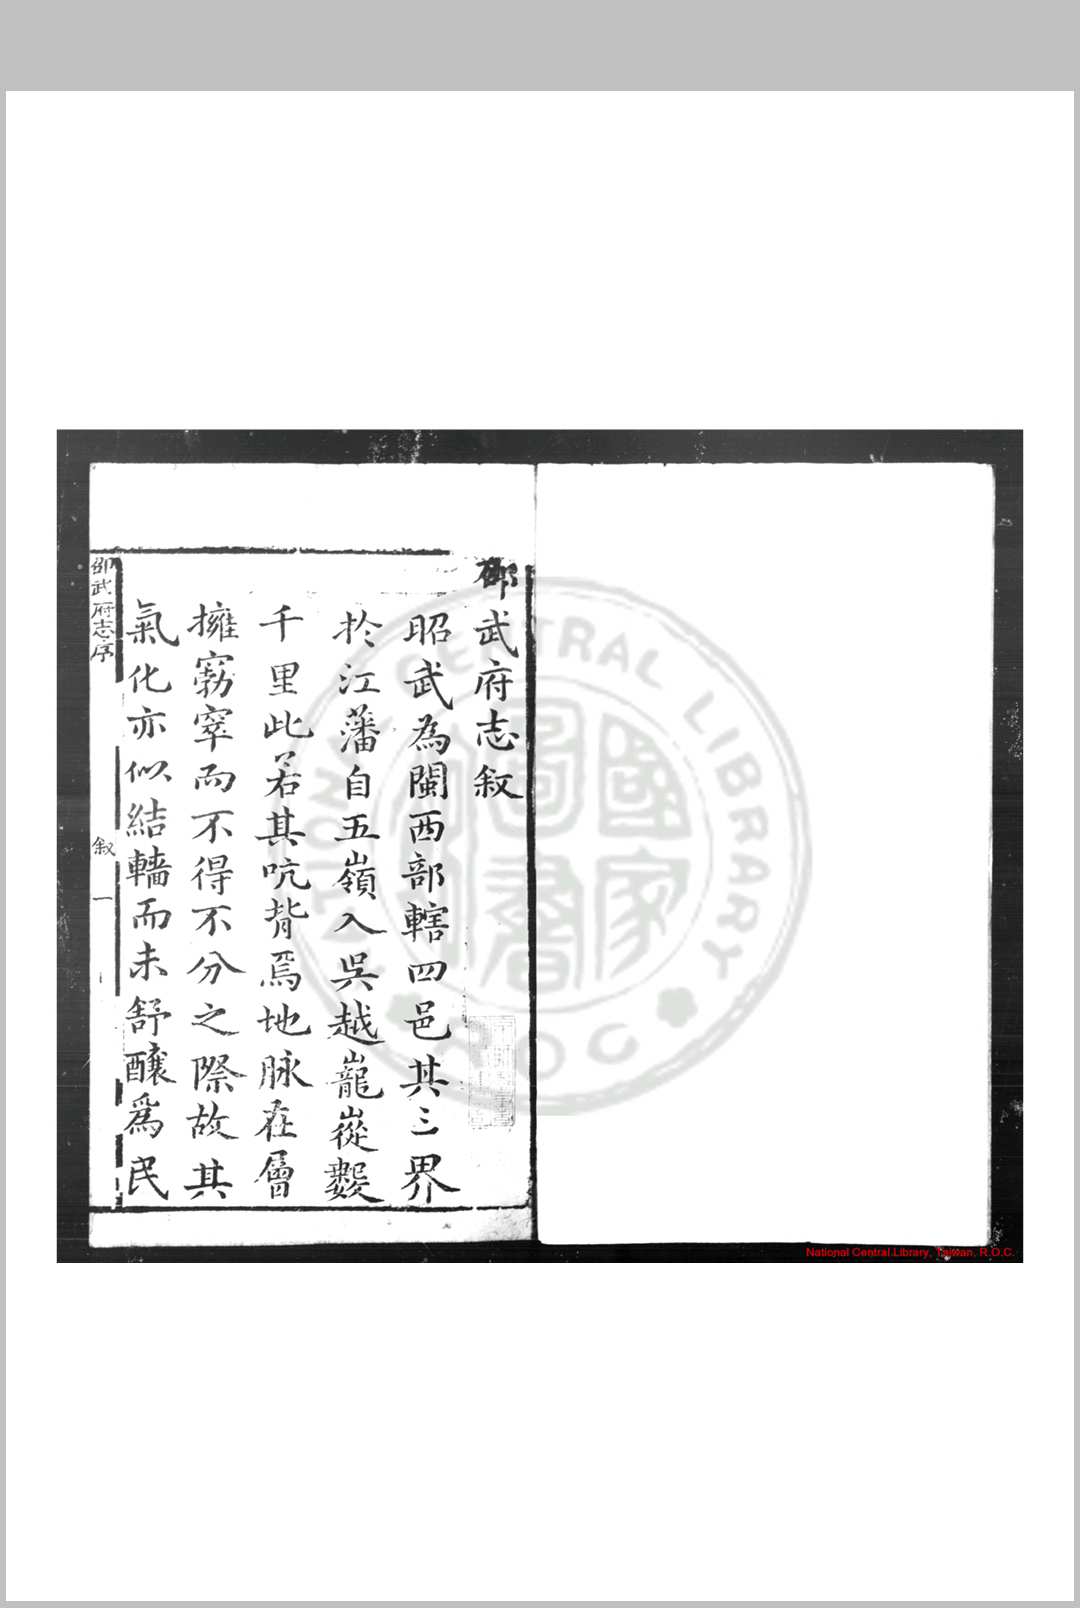 邵武府志叙
昭武為閩西部轄四邑其三界
於江藩自五嶺入吳越巃嵸
千里此若其吭背焉地脉在層
擁窮窣而不得不分之際故其
氣化亦似結轖而未舒釀爲民
邵武府志序
叙
一
NATIONAL CENTRAL LIBRARY
R.O.C
國家圖書
National Central Library, Taiwan, R.O.C.